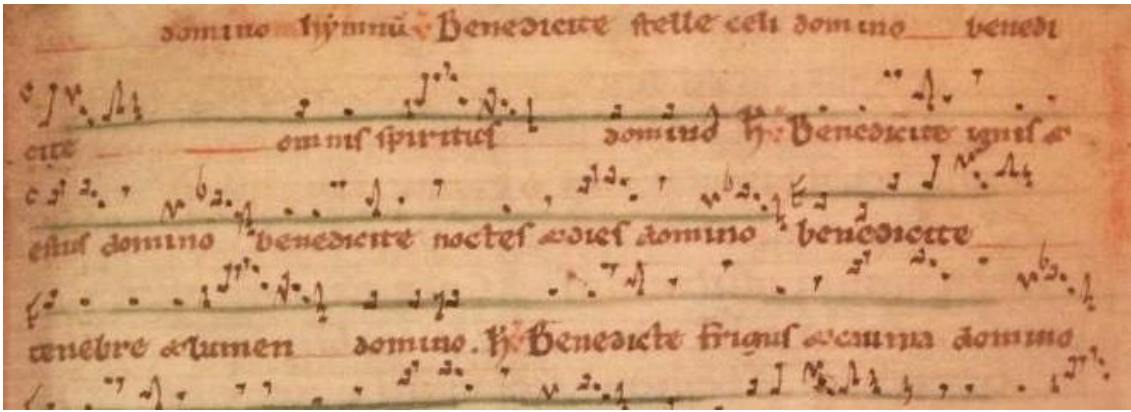 domino hẏmnū ℣ Benedicite stelle celi domino benedi
cite omnis spiritus domino H̅ ℣ Benedicite ignis &
estus domino benedicite noctes & dies domino benedicite
tenebre & lumen domino. H̅ ℣ Benedicte frigus & cauma domino